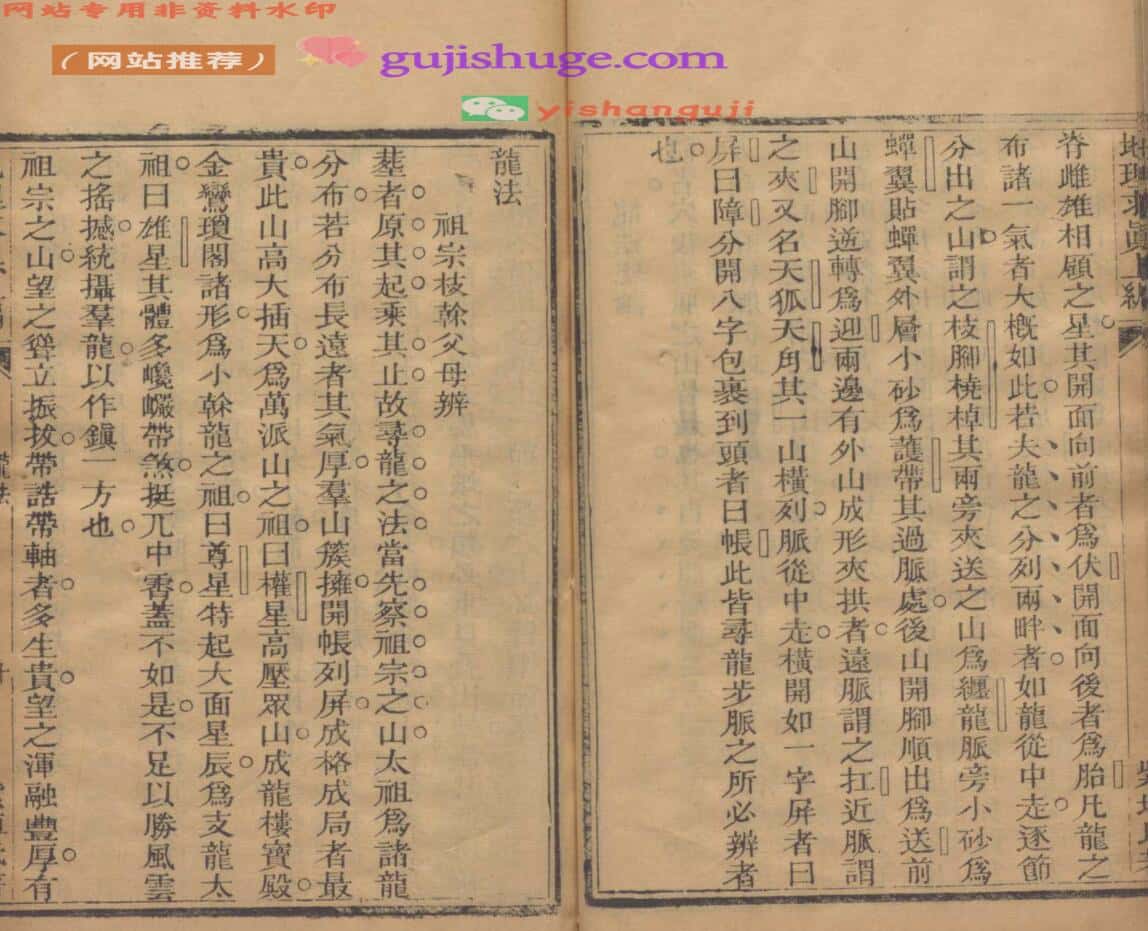 网站专用非资料水印
(网站推荐)
gujishuge.com
yishanguji
脊雌雄相顧之星其開面向前者爲伏開面向後者爲胎凡龍之
布諸一氣者大槪如此若夫龍之分列兩畔者如龍從中走逐節
分出之山謂之枝腳橈棹其兩旁夾送之山爲纏龍脈旁小砂爲
蟬翼貼蟬翼外層小砂爲護帶其過脈處後山開腳順出爲送前
山開腳逆轉爲迎兩邊有外山成形夾拱者遠脈謂之扛近脈謂
之夾又名天狐天角其一山橫列脈從中走橫開如一字屏者曰
屏曰障分開八字包裹到頭者曰帳此皆尋龍步脈之所必辨者
也
龍法
祖宗枝榦父母辨
塟者原其起乘其止故尋龍之法當先察祖宗之山太祖爲諸龍
分布若分布長遠者其氣厚羣山簇擁開帳列屏成格成局者最
貴此山高大插天爲萬派山之祖曰權星高壓眾山成龍樓寶殿
金鸞瓊閣諸形爲小榦龍之祖曰尊星特起大面星辰爲支龍太
祖曰雄星其體多巉巖帶煞挺兀中霄蓋不如是不足以勝風雲
之搖撼統攝羣龍以作鎭一方也
祖宗之山望之聳立振拔帶誥帶軸者多生貴望之渾融豐厚有
龍法